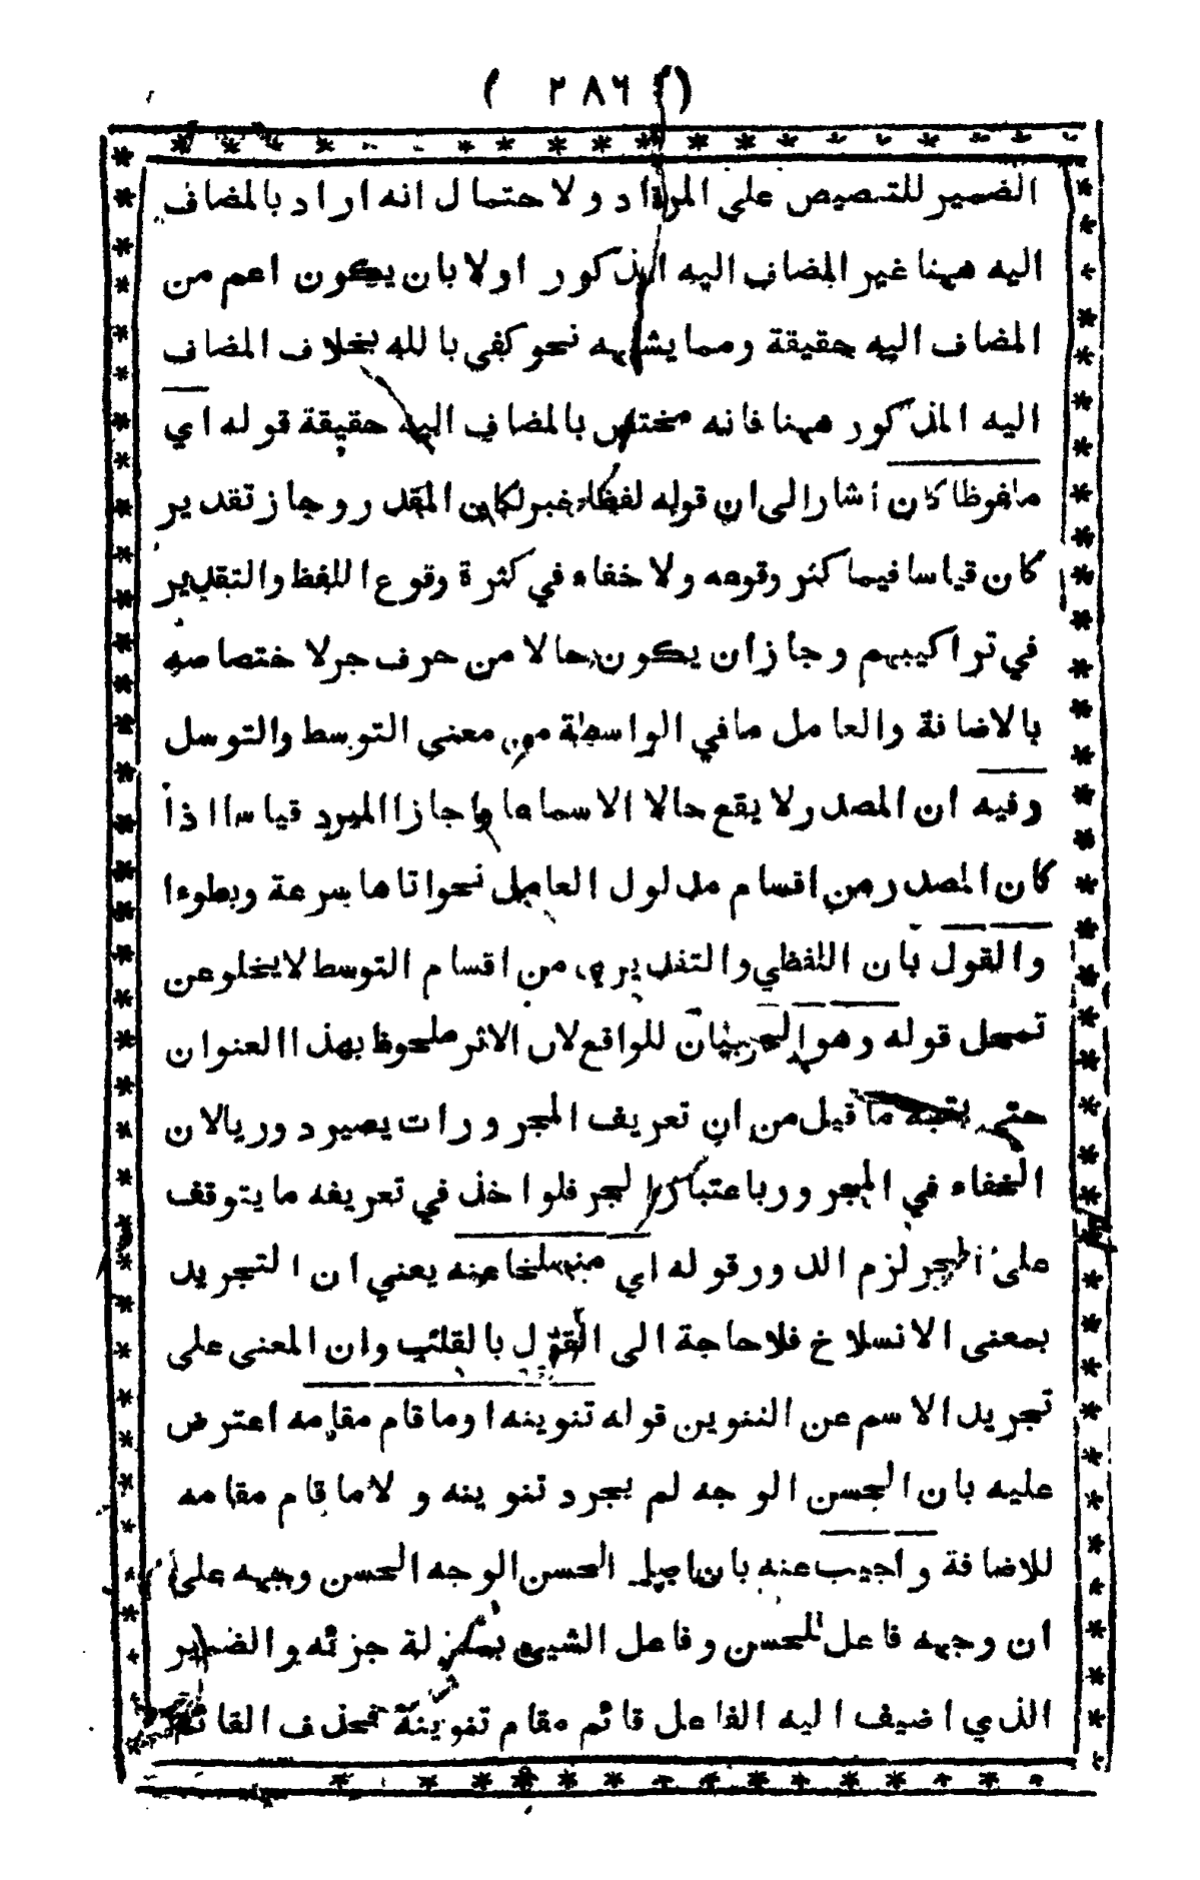 ( ٢٨٦ )
الضمير للتنصيص على المراد ولاحتمال انه اراد بالمضاف
اليه ههنا غير المضاف اليه المذكور اولا بان يكون اعم من
المضاف اليه حقيقة ومما يشابهه نحو كفى بالله بخلاف المضاف
اليه المذكور ههنا فانه مختص بالمضاف اليه حقيقة قوله اي
ملفوظا كان اشار الى ان قوله لفظا خبر لكان المقدر وجاز تقدير
كان قياسا فيما كثر وقوعه ولا خفاء في كثرة وقوع اللفظ والتقدير
في تراكيبهم وجاز ان يكون حالا من حرف جر لاختصاصه
بالاضافة والعامل ما في الواسطة من معنى التوسط والتوسل
وفيه ان المصدر لا يقع حالا الا سماعا واجاز المبرد قياسا اذا
كان المصدر من اقسام مدلول العامل نحو اتاها سرعة وبطوءا
والقول بان اللفظي والتقديري من اقسام التوسط لا يخلو عن
تمحل قوله وهو الجر بيان للواقع لان الاثر ملحوظ بهذا العنوان
حتى يتجه ما قيل من ان تعريف المجرورات يصير دوريا لان
الخفاء في المجرور باعتبار الجر فلو اخذ في تعريفه ما يتوقف
على الجر لزم الدور قوله اي منسلخا عنه يعني ان التجريد
بمعنى الانسلاخ فلا حاجة الى القول بالقلب وان المعنى على
تجريد الاسم عن التنوين قوله تنوينه او ما قام مقامه اعترض
عليه بان الحسن الوجه لم يجرد تنوينه ولا ما قام مقامه
للاضافة واجيب عنه بان اصل الحسن الوجه الحسن وجهه على
ان وجهه فاعل للحسن وفاعل الشيء بمنزلة جزئه والضمير
الذي اضيف اليه الفاعل قائم مقام تنوينه فحذف القائم